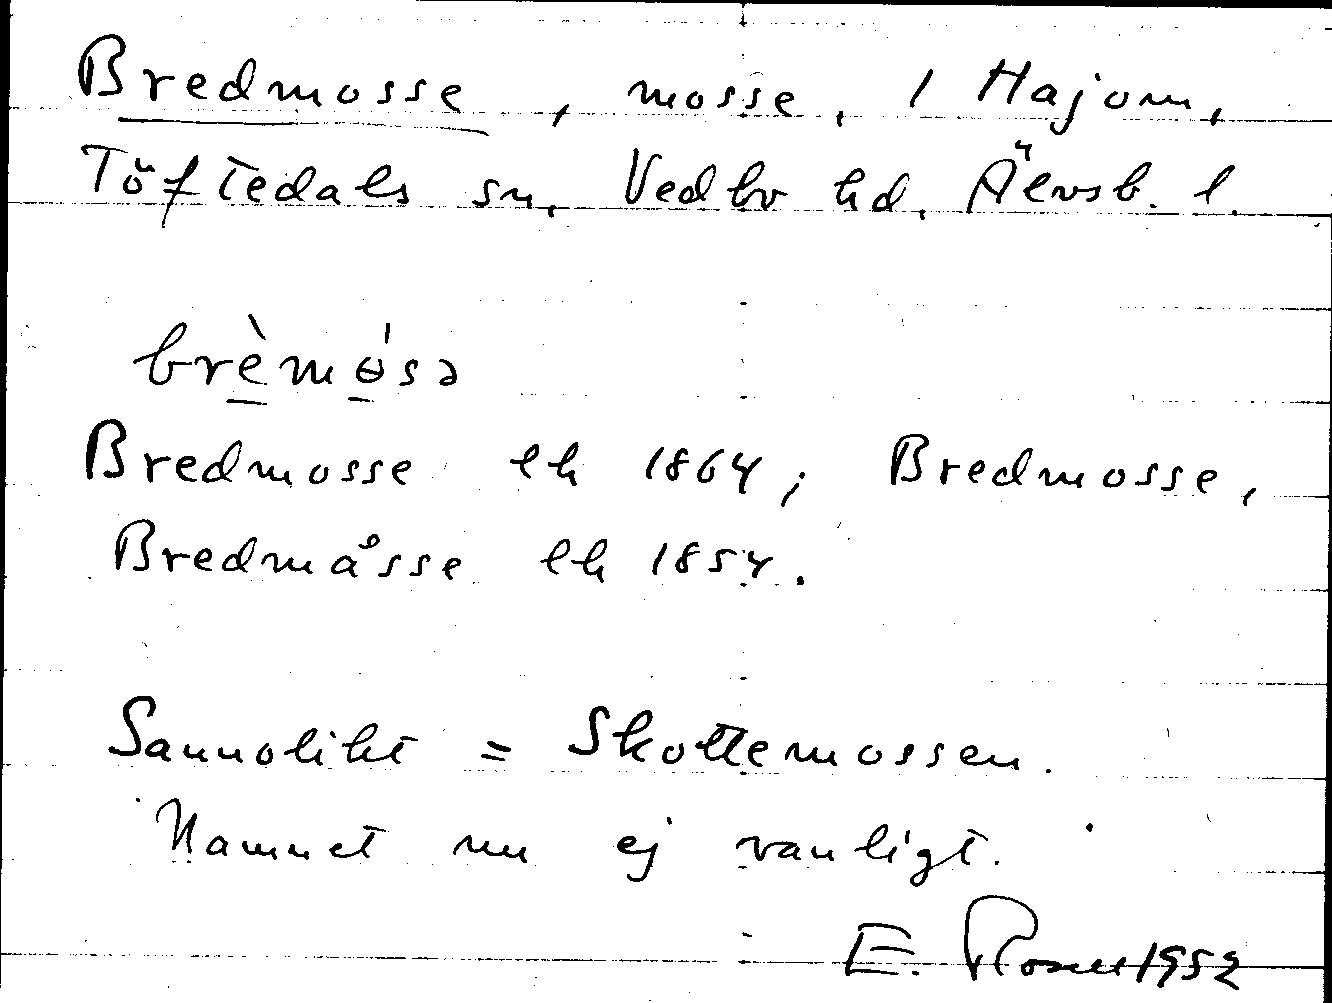 Bredmosse, mosse, 1 Hajom,
Töftedals sn, Vedbo hd, Älvsb. l.
brèmɵ́sə
Bredmosse lh 1864; Bredmosse,
Bredmåsse lh 1854.
Sannolikt = Skottemossen.
Namnet nu ej vanligt.
E. Rosell 1952